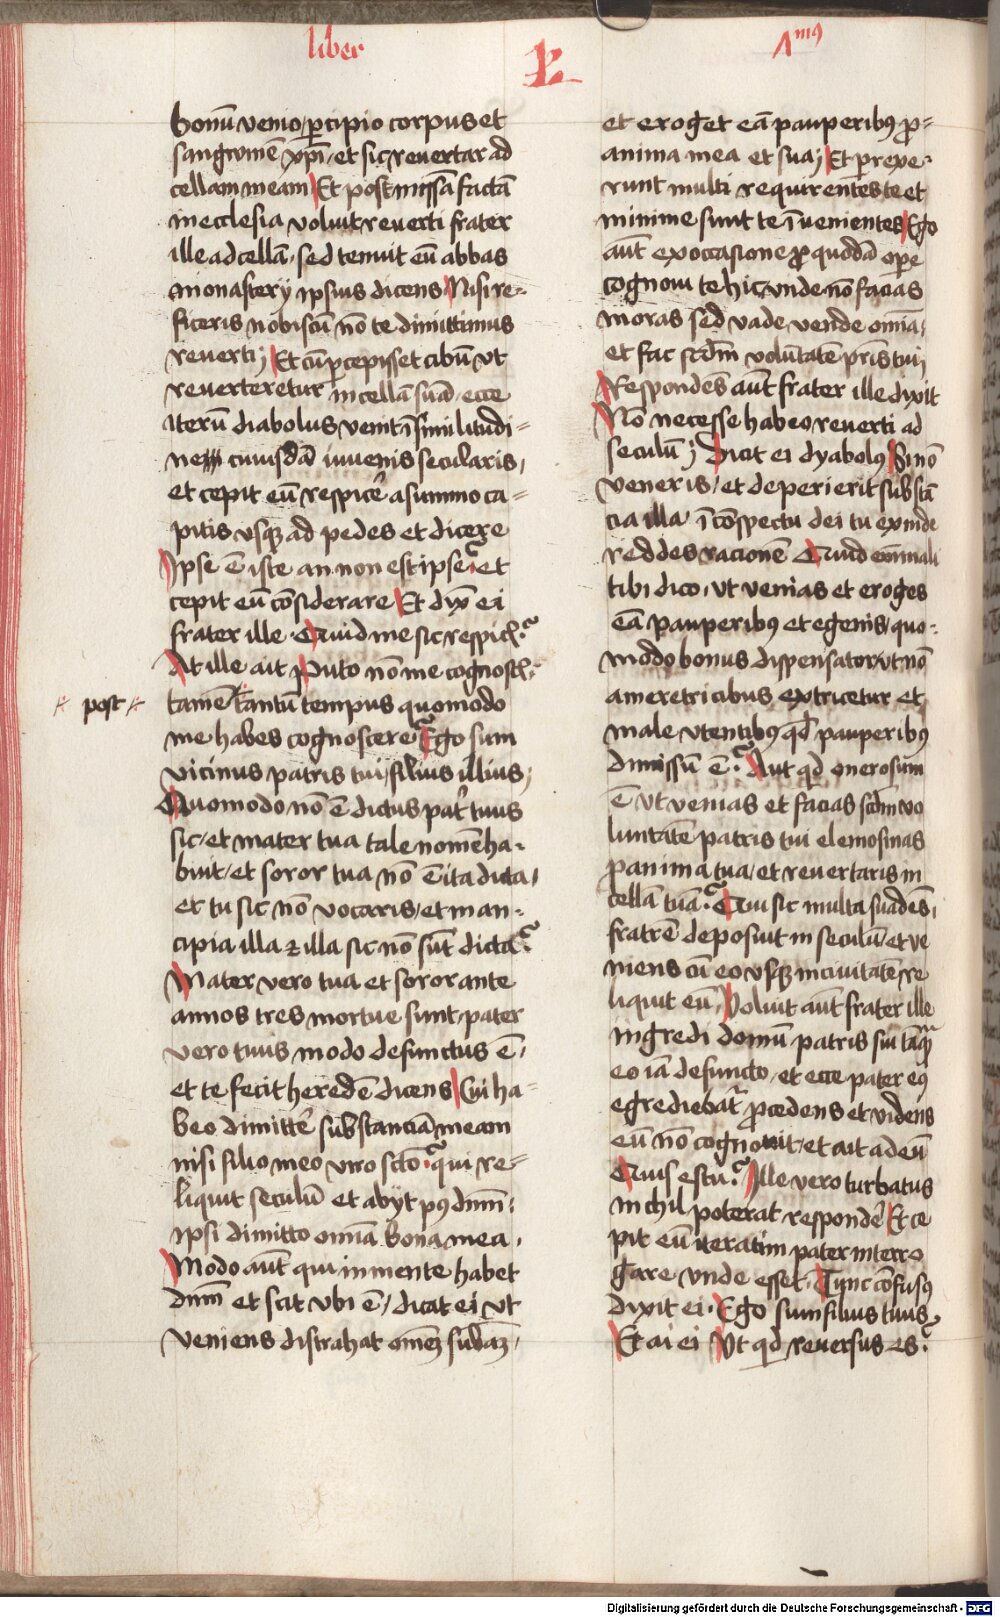 liber
L
1mꝰ
bonū venio, ꝑcipio corpus et
sangwinē xp̄i, et sic reuertar ad
cellam meam Et post missā factā
in ecclesia voluit reuerti frater
ille ad cellā, sed tenuit eū abbas
monasterij ipsius dicens Nisi re-
ficeris nobiscū nō te dimittimus
reuerti; Et cū ꝑcepisset cibū vt
reuerteretur in cellā suā, ecce
Iterū diabolus venit ī similitudi-
ne cuiusdā iuuenis secularis,
et cepit eū respicē a summo ca-
pitis vsqꝫ ad pedes et dicere
Ipse ē iste an non est ipse? et
cepit eū cōsiderare Et dix̄ ei
frater ille Quid me sic respicis?
At ille ait Puto nō me cognoscis
post
tamē tantū tempus quomodo
me habes cognoscere? Ego sum
vicinus patris tui, filius illius,
Quomodo nō ē dictus pat̄ tuus
sic, et mater tua tale nomē ha-
buit, et soror tua nō ē ita dicta,
et tu sic nō vocaris, et man-
cipia illa ⁊ illa sic nō sūt dicta?
Mater vero tua et soror ante
annos tres mortue sunt, pater
vero tuus modo defunctus ē,
et te fecit heredē dicens Cui ha-
beo dimitt̄e substanciā meam
nisi filio meo viro scō? qui re-
liquit seculū et abijt pꝰ dnm̄,
ipsi dimitto omīa bona mea,
Modo aut̄ qui in mente habet
dnm̄ et scit vbi ē, dicat ei vt
veniens distrahat omēꝫ subāꝫ,
et eroget eā pauperibꝰ ꝓ-
anima mea et sua; Et prexe-
runt multi requirentes te et
minime sunt te īuenientes Ego
aut̄ ex occasione ꝓ quodā ope
cognoui te hic, vnde nō facias
moras sed vade, vende omīa,
et fac scd̄m volūtatē pr̄is tui,
Respondēs aut̄ frater ille dixit
Nō necesse habeo reuerti ad
seculū; Dicit ei dyabolꝰ Si nō
veneris, et deperierit substā
cia illa ī cōspectu dei tu exinde
reddes racionē Quid em̄ mali
tibi dico, vt venias et eroges
eā pauperibꝰ et egenis, quo-
modo bonus dispensator, vt nō
a meretricibus extricetur et
male vtentibꝰ qd̄ pauperibꝰ
dimissū ē? Aut qd̄ onerosum
ē vt venias et facias scd̄m vo
luntatē patris tui elemosinas
ꝓ anima tua, et reuertaris in
cellā tuā? Qui sic multa suadēs,
fratrē deposuit in seculū, et ve
niens cū eo vsqꝫ in ciuitatē re
liquit eū, Voluit aut̄ frater ille
ingredi domū patris sui tāqꝫ
eo iā defuncto, et ecce pater eiꝰ
egrediebat̄ ꝓcedens et videns
eū nō cognouit, et ait ad eū
Quis es tu? Ille vero turbatus
nichil poterat respondē Et ce
pit eū iteratim pater interro
gare vnde esset. Tunc cōfusꝰ
dixit ei. Ego sum filius tuus,
Et ai ei Vt qd̄ reuersus es?
Digitalisierung gefördert durch die Deutsche Forschungsgemeinschaft - DFG